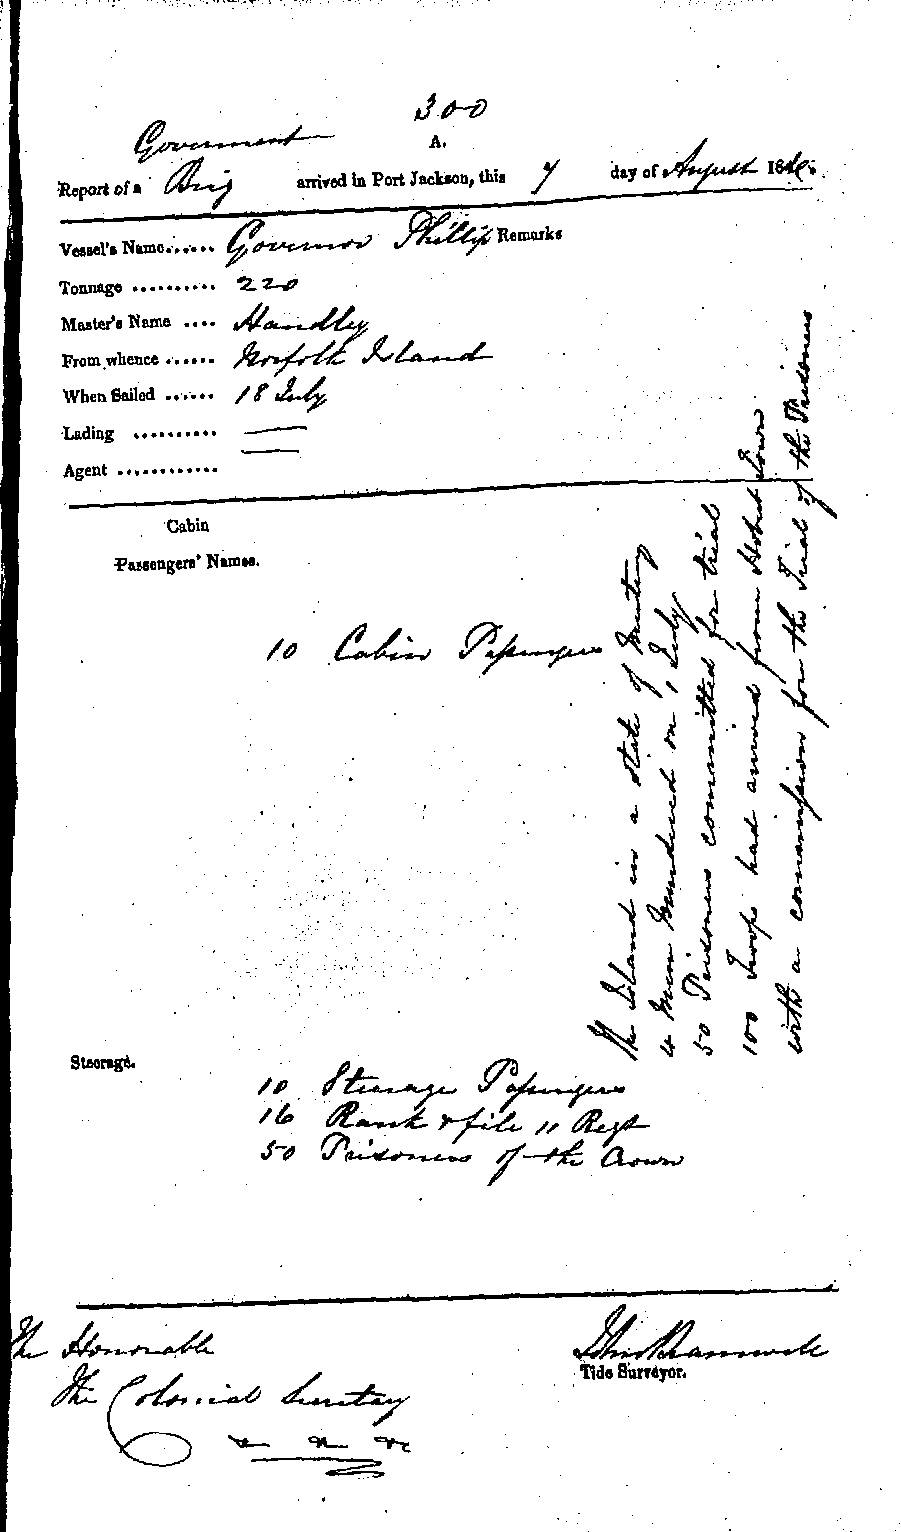 300
A.
Government
Report of a Brig arrived in Port Jackson, this 7 day of August 1846.
Vessel's Name...... Governor Phillip Remarks
Tonnage .......... 220
Master's Name .... Handley
From whence ...... Norfolk Island
When Sailed ...... 18 July
Lading .......... —
Agent ............ —
Cabin
Passengers' Names.
10 Cabin Passengers
The Island in a state of Mutiny
4 Men Murdered on 1 July
50 Prisoners committed for trial
100 Troops had arrived from Hobart Town
with a commission for the Trial of the Prisoners
Steerage.
10 Steerage Passengers
16 Rank & file 11 Regt
50 Prisoners of the Crown
The Honorable
The Colonial Secretary
&c &c &c
John Bramwell
Tide Surveyor.